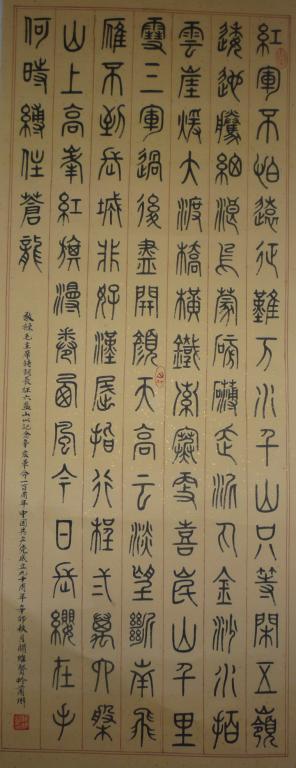 紅軍不怕遠征難万水千山只等閑五嶺
逶迤騰細浪烏蒙磅礴走泥丸金沙水拍
雲崖煖大渡橋橫鐵索寒更喜岷山千里
雪三軍過後盡開顏天高云淡望斷南飛
雁不到長城非好漢屈指行程弍萬六盤
山上高峯紅旗漫卷西風今日長纓在手
何時縛住蒼龍
敬錄毛主席詩詞長征六盤山以紀念辛亥革命一百周年中国共产党成立九十周年辛卯秋月